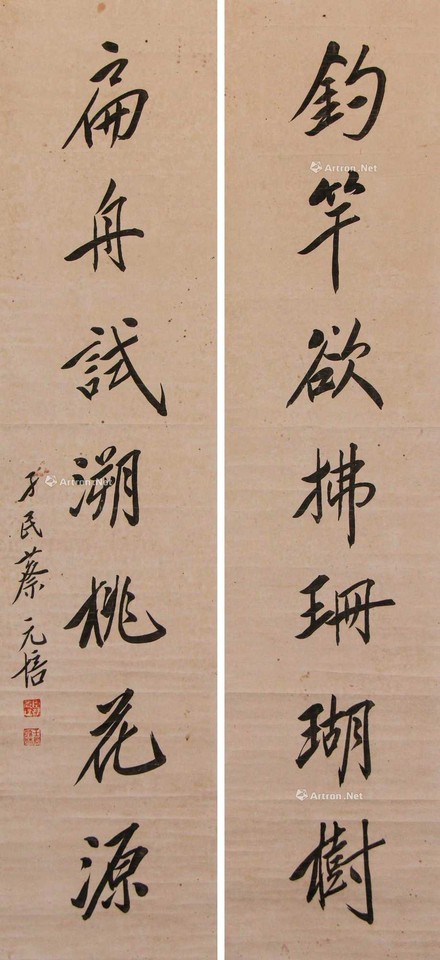 釣竿欲拂珊瑚樹
扁舟試溯桃花源
孑民蔡元培
Artron.Net
Artron.Net
Artron.Net